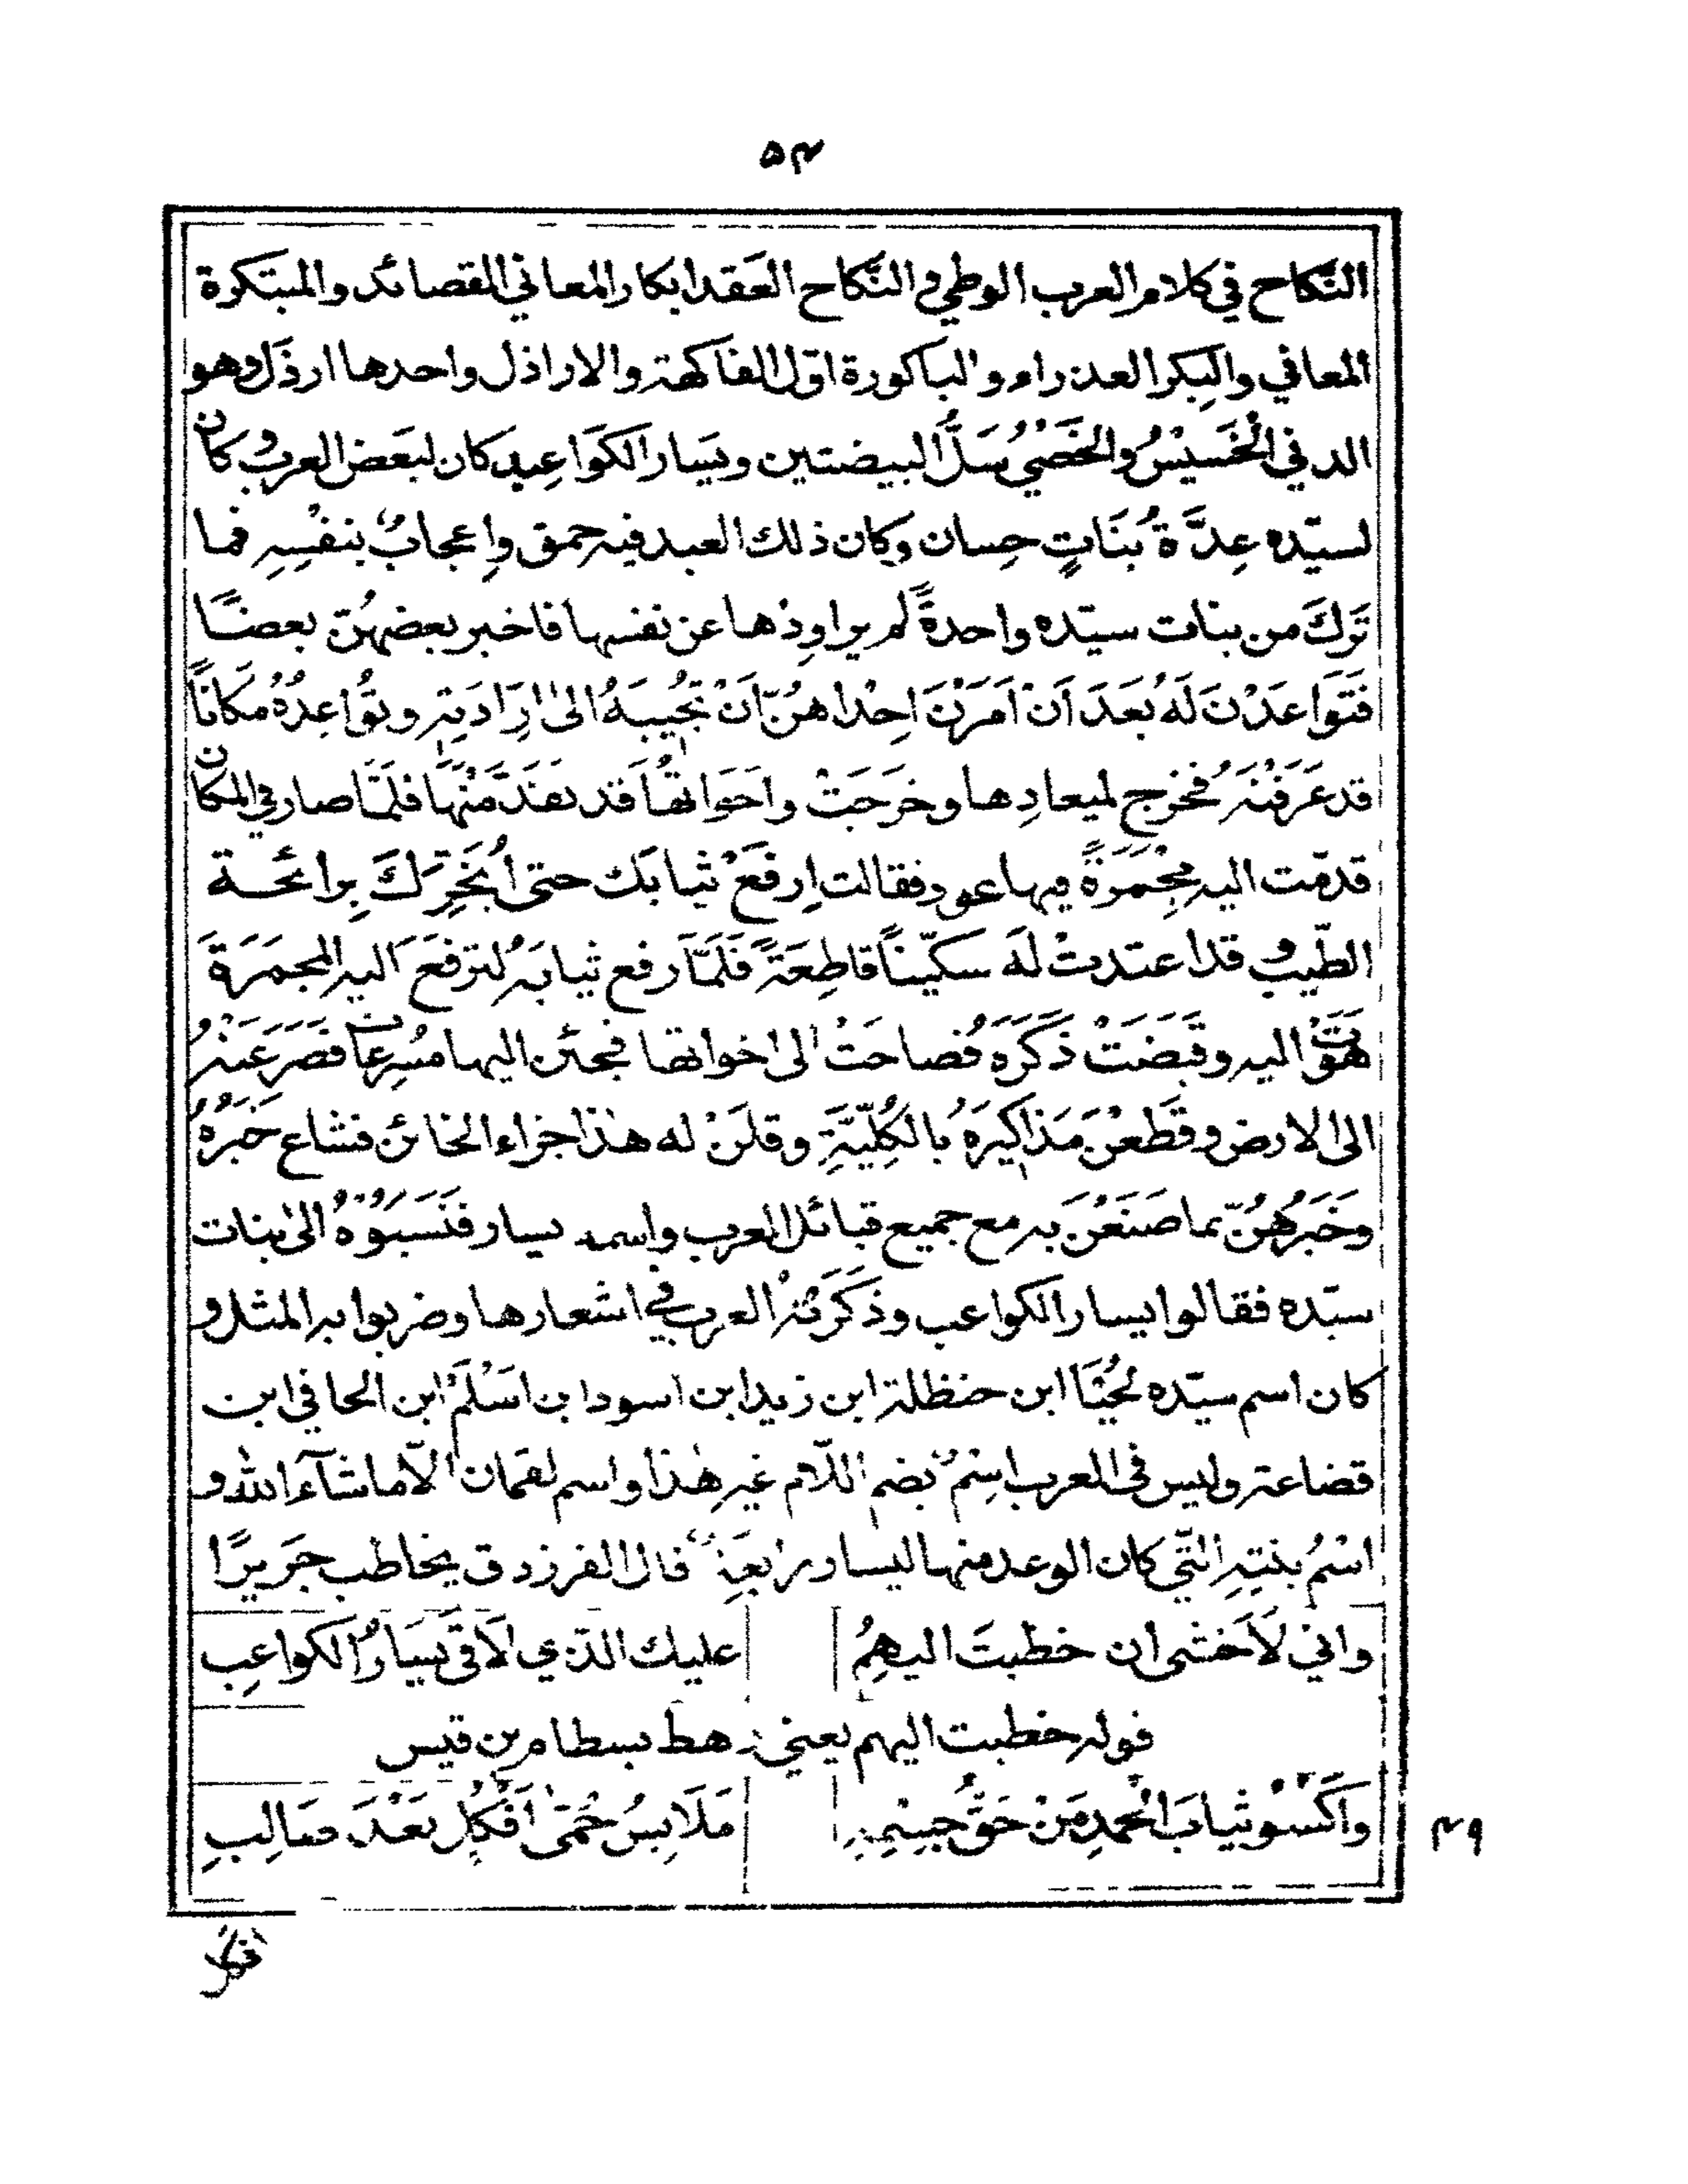 ٥٤
النّكاح في كلام العرب الوطي و النّكاح العَقد ابكار المعاني القصائد والمبتكرة
المعاني والبِكر العذراء والباكورة اوّل الفاكهة والاراذل واحدها ارذَل وهو
الدني الْخَسيْسُ والخَصْيُ سَلُّ البيضتين ويَسار الكَوَاعِب عبد كان لبَعَض العرب و كان
لسيّده عِدَّةُ بَنَاتٍ حِسان وكان ذلك العبد فيه حمق وإعجابٌ بنفْسِهِ فما
تَرَكَ من بنات سيّده واحدةً لم يراوِدْها عن نفسها فاخبر بعضهُنّ بعضًا
فَتَوَاعَدْنَ لَهُ بَعَدَ اَنْ اَمَرْنَ اِحْداهنّ اَنْ تُجِيبَهُ الىٰ اِرَادَتِهِ وتُوَاعِدُهُ مَكَانًا
قد عَرَفْنَهُ فخرج لميعادِها وخرَجَتْ واخَوَاتها قد تقَدَّمْنَها فلَمَّا صار في المكان
قدمّت اليه مِجْمَرَةً فيها عود فقالت اِرفَعْ ثيابَك حتى اُبَخِّرَكَ بِرائحة
الطّيب و قد اعتدتْ لَه سكّينًا قاطِعَةً فَلَمَّا رفع ثيابَه لترفَعَ اليه المجمَرَةَ
هَوَتْ اليه وقَبَضَتْ ذَكَرَه فصاحَتْ الى اخواتها فجئن اليها مسرِعات فصَرَعنَهُ
الى الارض وقَطَعْنَ مَذاكيرَهُ بالكُلِّيَّةِ وقلَنْ له هذا جزاء الخائن فشاع خَبَرُهُ
وخَبَرُهُنّ بما صَنَعْنَ به مع جميع قبائل العرب واسمه يسار فنَسَبُوْهُ الى بنات
سيّده فقالوا يسار الكواعب وذَكَرَتْهُ العرب في اشعارها وضربوا به المثل و
كان اسم سيّده ابن حنظلة ابن زيد ابن اسود ابن اسْلُم ابن الحافي ابن
قضاعة وليس في العرب اِسْمٌ بضم اللّام غير هٰذا واسم لقمان الّا ما شآء الله و
اسْمُ بنتِهِ الّتي كان الوعد منها ليسار قال الفرزدق يخاطب جَريرًا
واني لَاَخشى ان خطبتَ اليهِمُ عليك الّذي لَاقى يَسَارُ الكواعِب
قوله خطبت اليهم يعني رهط بسطام بن قيس
وَاَكْسُو ثيابَ الْحَمدِ مَنْ حَقُّ جِسْمِهِ مَلَابِسُ حُمّىٰ اَفْكَلٍ بَعْدَ صَالِبِ
٤٩